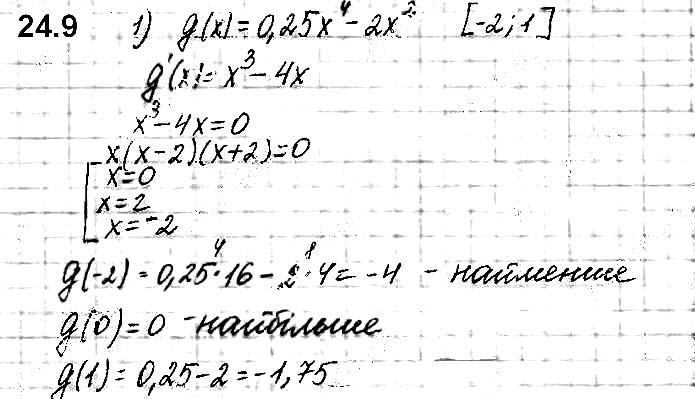 24.9 1) g(x)=0,25x⁴-2x² [-2;1]
g'(x)=x³-4x
x³-4x=0
x(x-2)(x+2)=0
x=0
x=2
x=-2
g(-2)=0,25·16-2·4=-4 - найменше
g(0)=0 - найбільше
g(1)=0,25-2=-1,75